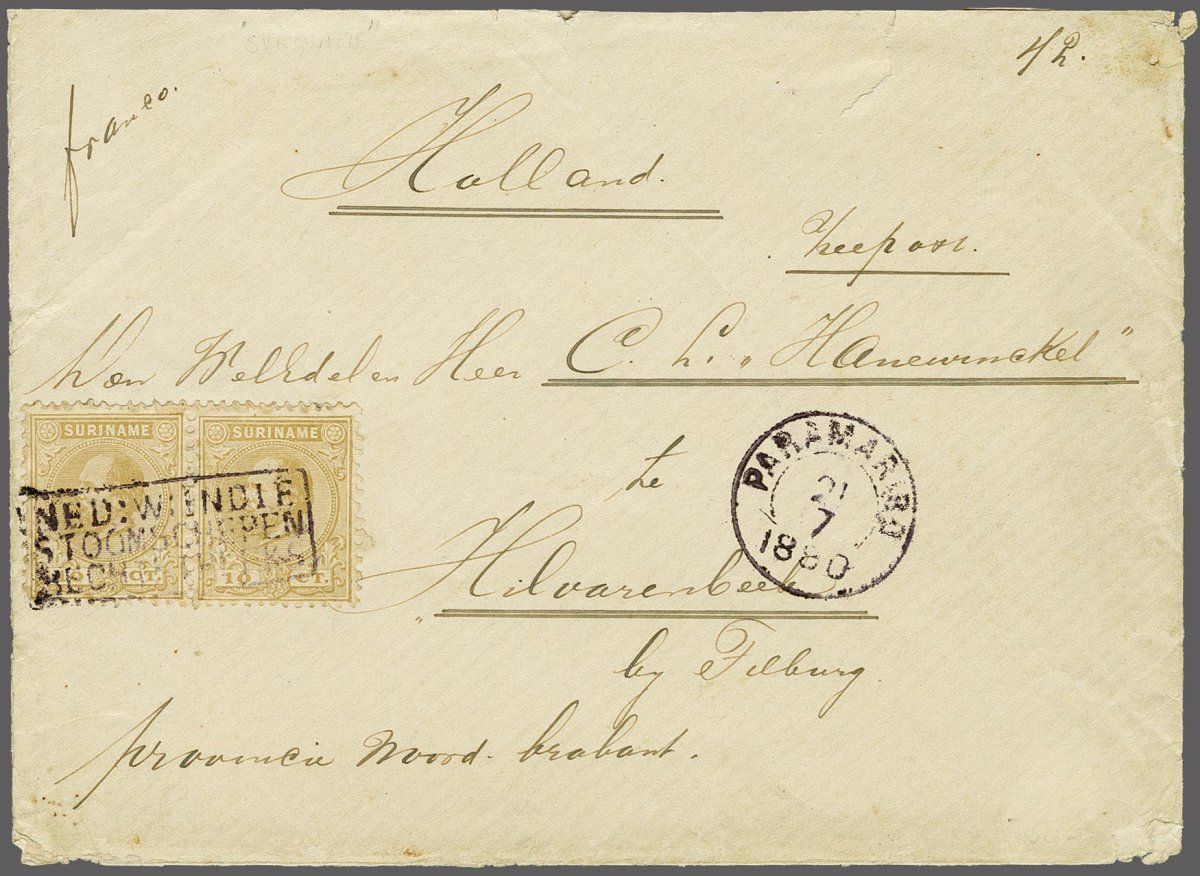 "SURINAME"
franco.
1/2.
Holland.
Zeepost.
Den WelEdelen Heer C. L. „Hanewinckel"
SURINAME SURINAME
10 CT. 10 CT.
NED: W: INDIE
STOOMSCHEPEN
RECHTSTREEKS
PARAMARIBO
21
7
1880
te
Hilvarenbeek
by Tilburg.
provincie Noord-brabant.